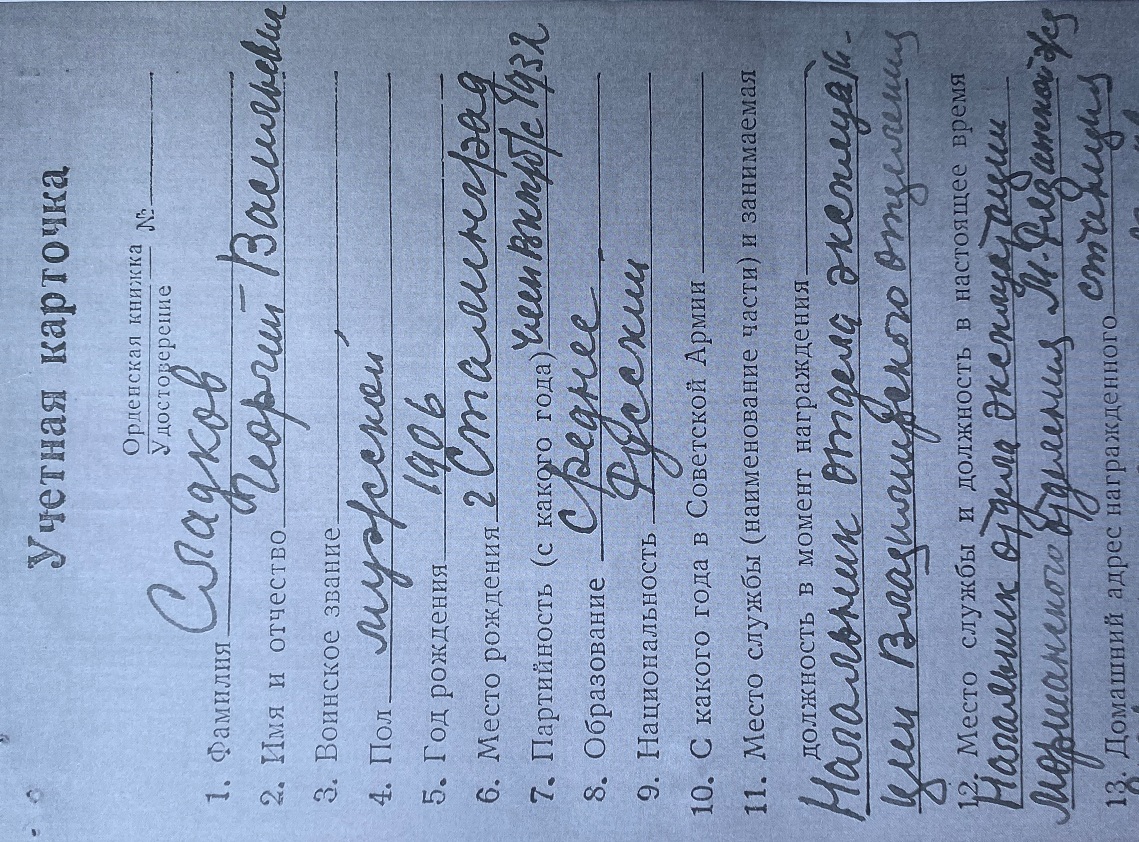 Учетная карточка
Орденская книжка
Удостоверение №
1. Фамилия Сладков
2. Имя и отчество Георгий Васильевич
3. Воинское звание
4. Пол мужской
5. Год рождения 1906
6. Место рождения г Сталинград
7. Партийность (с какого года) Член ВКП(б) с 1932
8. Образование Среднее
9. Национальность Русский
10. С какого года в Советской Армии
11. Место службы (наименование части) и занимаемая
должность в момент награждения
Начальник отдела эксплуата-
ции Владимирского отделения
12. Место службы и должность в настоящее время
Начальник отдела эксплуатации
Моршанского отделения М-Рязанской жд
13. Домашний адрес награжденного станция